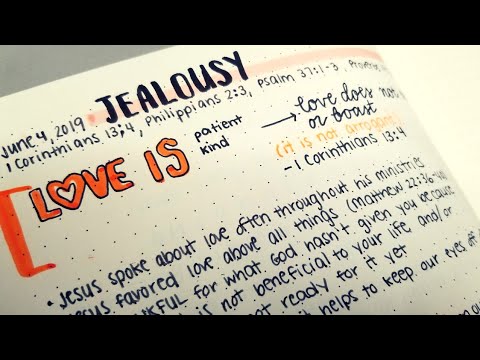 June 4, 2019 JEALOUSY
1 Corinthians 13:4, Philippians 2:3, Psalm 37:1-3, Proverbs
LOVE IS patient
kind
→ love does not
or boast
(it is not arrogant)
-1 Corinthians 13:4
• Jesus spoke about love often throughout his ministries
Jesus favored love above all things (matthew 22:36-40
FUL for what God hasn't given you because
is not beneficial to your life and/or
not ready for it yet
it helps to keep our eyes off